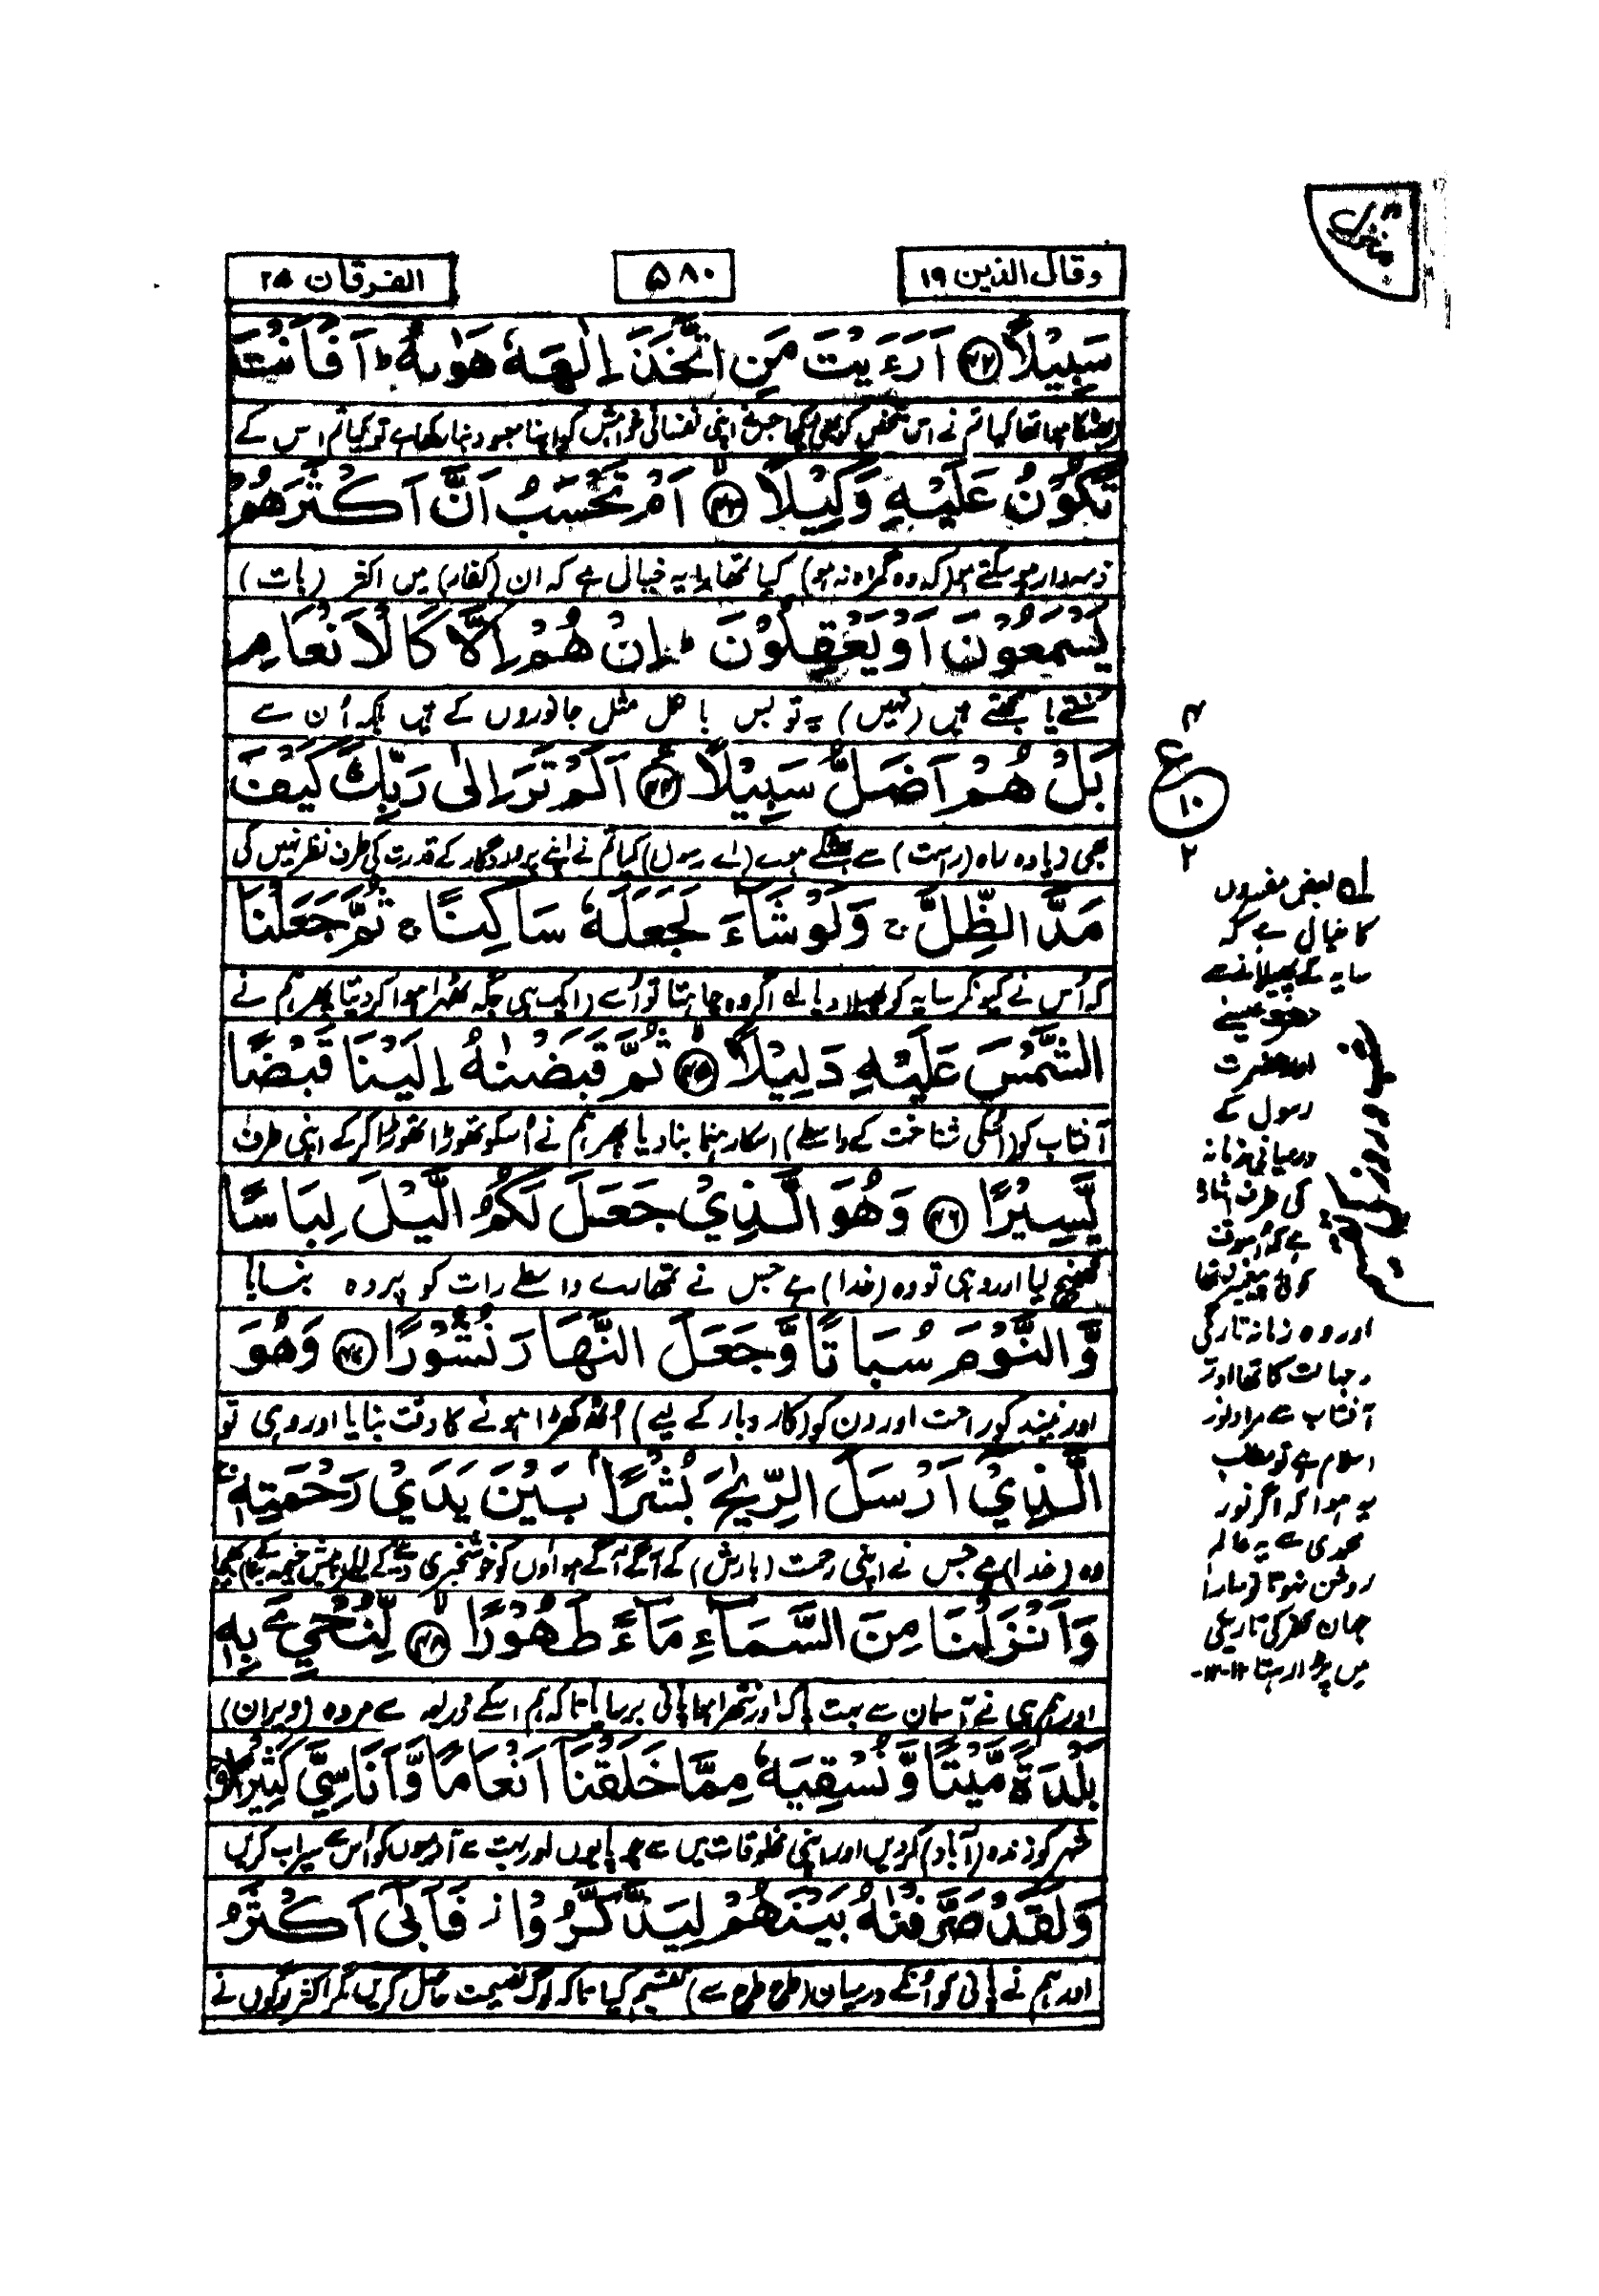 وقال الذین ۱۹
۵۸۰
الفرقان ۲۵
سَبِیْلًا ﴿۴۲﴾ اَرَءَیْتَ مَنِ اتَّخَذَ اِلٰهَهٗ هَوٰىهُ ؕ اَفَاَنْتَ
تم نے اس شخص کو بھی دیکھا جس نے اپنی نفسانی خواہش کو اپنا معبود بنا رکھا ہے تو کیا تم اس کے
تَكُوْنُ عَلَیْهِ وَكِیْلًا ﴿۴۳﴾ اَمْ تَحْسَبُ اَنَّ اَكْثَرَهُمْ
ذمہ دار ہو سکتے ہو (کہ وہ گمراہ نہ ہو) کیا تمھارا یہ خیال ہے کہ ان (کفار) میں اکثر (بات)
یَسْمَعُوْنَ اَوْ یَعْقِلُوْنَ ؕ اِنْ هُمْ اِلَّا كَالْاَنْعَامِ
سنتے یا سمجھتے ہیں (نہیں) یہ تو بس بالکل مثل جانوروں کے ہیں بلکہ اُن سے
بَلْ هُمْ اَضَلُّ سَبِیْلًا ﴿۴۴﴾ اَلَمْ تَرَ اِلٰى رَبِّكَ كَیْفَ
بھی زیادہ راہ (راست) سے بھٹکے ہوے (اے رسول) کیا تم نے اپنے پروردگار کے قدرت کی طرف نظر نہیں کی
مَدَّ الظِّلَّ ۚ وَلَوْ شَآءَ لَجَعَلَهٗ سَاكِنًا ۚ ثُمَّ جَعَلْنَا
کہ اُس نے کیونکر سایہ کو پھیلا دیا لہ اگر وہ چاہتا تو اُسے (ایک ہی جگہ) ٹھہرا ہوا کر دیتا پھر ہم نے
الشَّمْسَ عَلَیْهِ دَلِیْلًا ﴿۴۵﴾ ثُمَّ قَبَضْنٰهُ اِلَیْنَا قَبْضًا
آفتاب کو (اُسکی شناخت کے واسطے) اسکا رہنما بنا دیا پھر ہم نے اُسکو تھوڑا تھوڑا کر کے اپنی طرف
یَّسِیْرًا ﴿۴۶﴾ وَهُوَ الَّذِیْ جَعَلَ لَكُمُ الَّیْلَ لِبَاسًا
کھینچ لیا اور وہی تو وہ (خدا) ہے جس نے تمھارے واسطے رات کو پردہ بنایا
وَّالنَّوْمَ سُبَاتًا وَّجَعَلَ النَّهَارَ نُشُوْرًا ﴿۴۷﴾ وَهُوَ
اور نیند کو راحت اور دن کو (کاروبار کے لیے) اُٹھ کھڑا ہونے کا وقت بنایا اور وہی تو
الَّذِیْ اَرْسَلَ الرِّیٰحَ بُشْرًۢا بَیْنَ یَدَیْ رَحْمَتِهٖ ۚ
وہ (خدا) ہے جس نے اپنی رحمت (بارش) کے آگے آگے ہواؤں کو خوشخبری دینے کے لیے
وَاَنْزَلْنَا مِنَ السَّمَآءِ مَآءً طَهُوْرًا ﴿۴۸﴾ لِّنُحْیِۦَ بِهٖ
اور ہم ہی نے آسمان سے بہت پاک اور ستھرا ہوا پانی برسایا تاکہ ہم اسکے ذریعہ سے مردہ (ویران)
بَلْدَةً مَّیْتًا وَّنُسْقِیَهٗ مِمَّا خَلَقْنَاۤ اَنْعَامًا وَّاَنَاسِیَّ كَثِیْرًا ﴿۴۹﴾
شہر کو زندہ (آباد) کر دیں اور اپنی مخلوقات میں سے چوپایوں اور بہت سے آدمیوں کو اُس سے سیراب کریں
وَلَقَدْ صَرَّفْنٰهُ بَیْنَهُمْ لِیَذَّكَّرُوْا ۖ فَاَبٰۤى اَكْثَرُ
اور ہم نے پانی کو اُنکے درمیان (طرح طرح سے) تقسیم کیا تاکہ لوگ نصیحت حاصل کریں مگر اکثر لوگوں نے
منزل ۴
۴
ع
۱۰
۲
لہ بعض مفسروں
کا خیال ہے کہ
سایہ کے پھیلانے سے
حضرت عیسیٰ
اور حضرت
رسول کے
درمیانی زمانہ
کی طرف اشارہ
ہے کہ اُسوقت
کوئی پیغمبر نہ تھا
اور وہ زمانہ تاریکی
و جہالت کا تھا اور
آفتاب سے مراد نور
اسلام ہے تو مطلب
یہ ہوا کہ اگر نور
محمدی سے یہ عالم
روشن نہوتا تو سارا
جہان کفر کی تاریکی
میں پڑا رہتا ۱۲-۱۲-